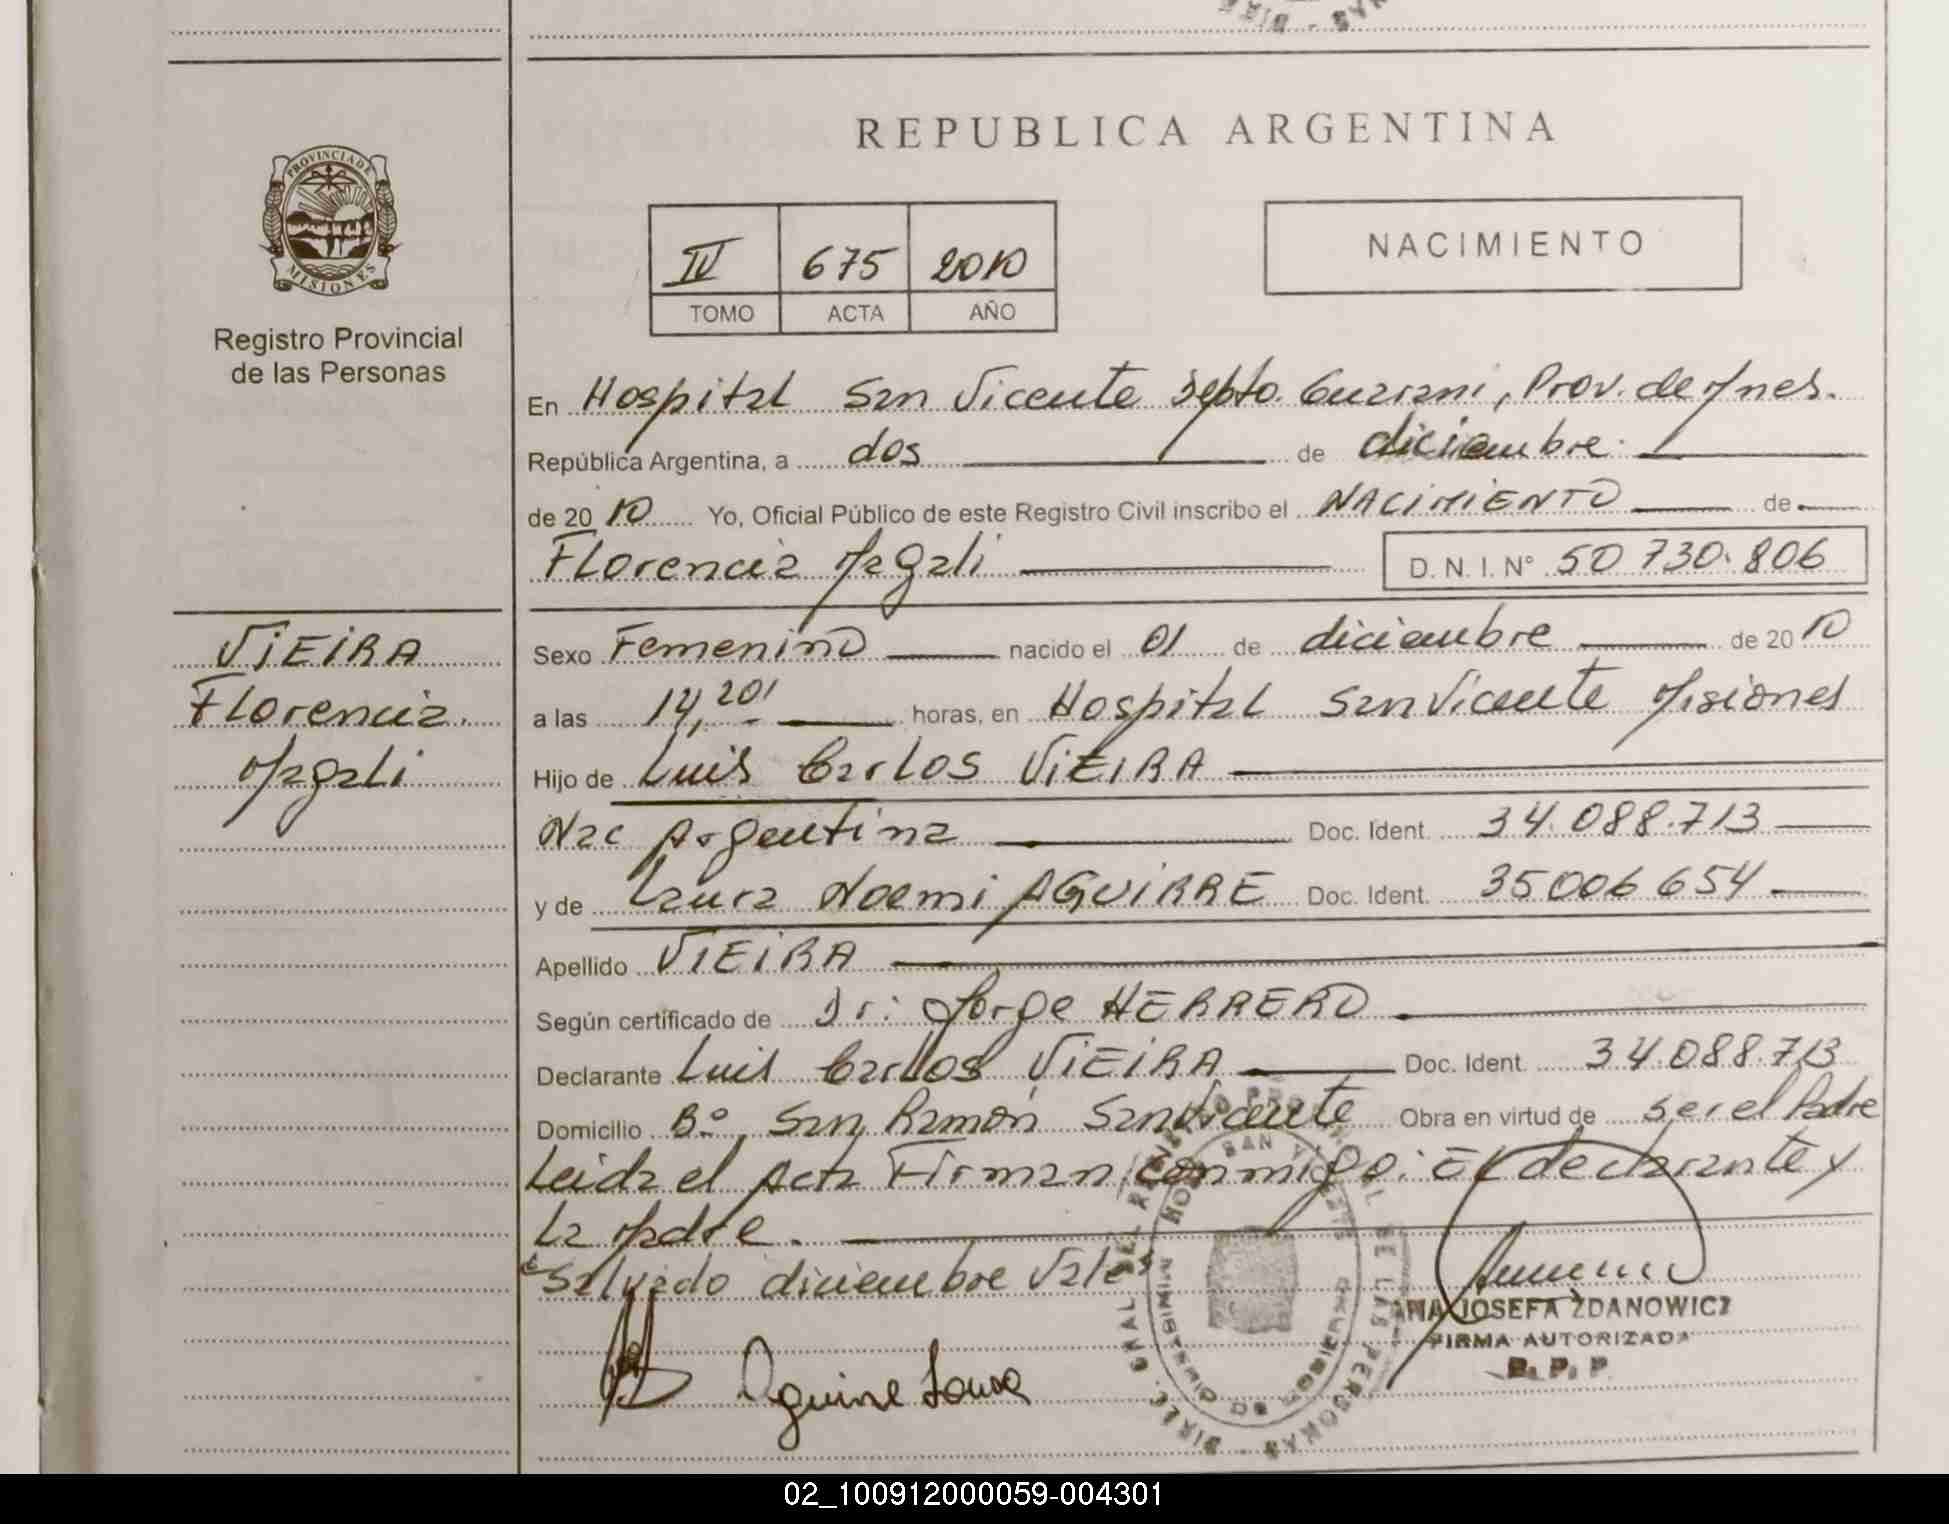 REPUBLICA ARGENTINA
PROVINCIA DE MISIONES
Registro Provincial
de las Personas
IV 675 2010
TOMO ACTA AÑO
NACIMIENTO
En Hospital San Vicente Depto. Guarani, Prov. de Mnes.
República Argentina, a dos de diciembre
de 2010 Yo, Oficial Público de este Registro Civil inscribo el NACIMIENTO de
Florencia Magali D. N. I. N° 50 730.806
VIEIRA
Florencia
Magali
Sexo Femenino nacido el 01 de diciembre de 2010
a las 14,20' horas, en Hospital San Vicente Misiones
Hijo de Luis Carlos VIEIRA
Nac Argentina Doc. Ident. 34.088.713
y de Laura Noemi AGUIRRE Doc. Ident. 35006654
Apellido VIEIRA
Según certificado de Dr: Jorge HERRERO
Declarante Luis Carlos VIEIRA Doc. Ident. 34.088.713
Domicilio B° San Ramón San Vicente Obra en virtud de ser el Padre
Leida el Acta Firman conmigo: El declarante y
la Madre.
Salvado diciembre Vale
Aguirre Laura
ANA JOSEFA ZDANOWICZ
FIRMA AUTORIZADA
R. P. P.
02_100912000059-004301